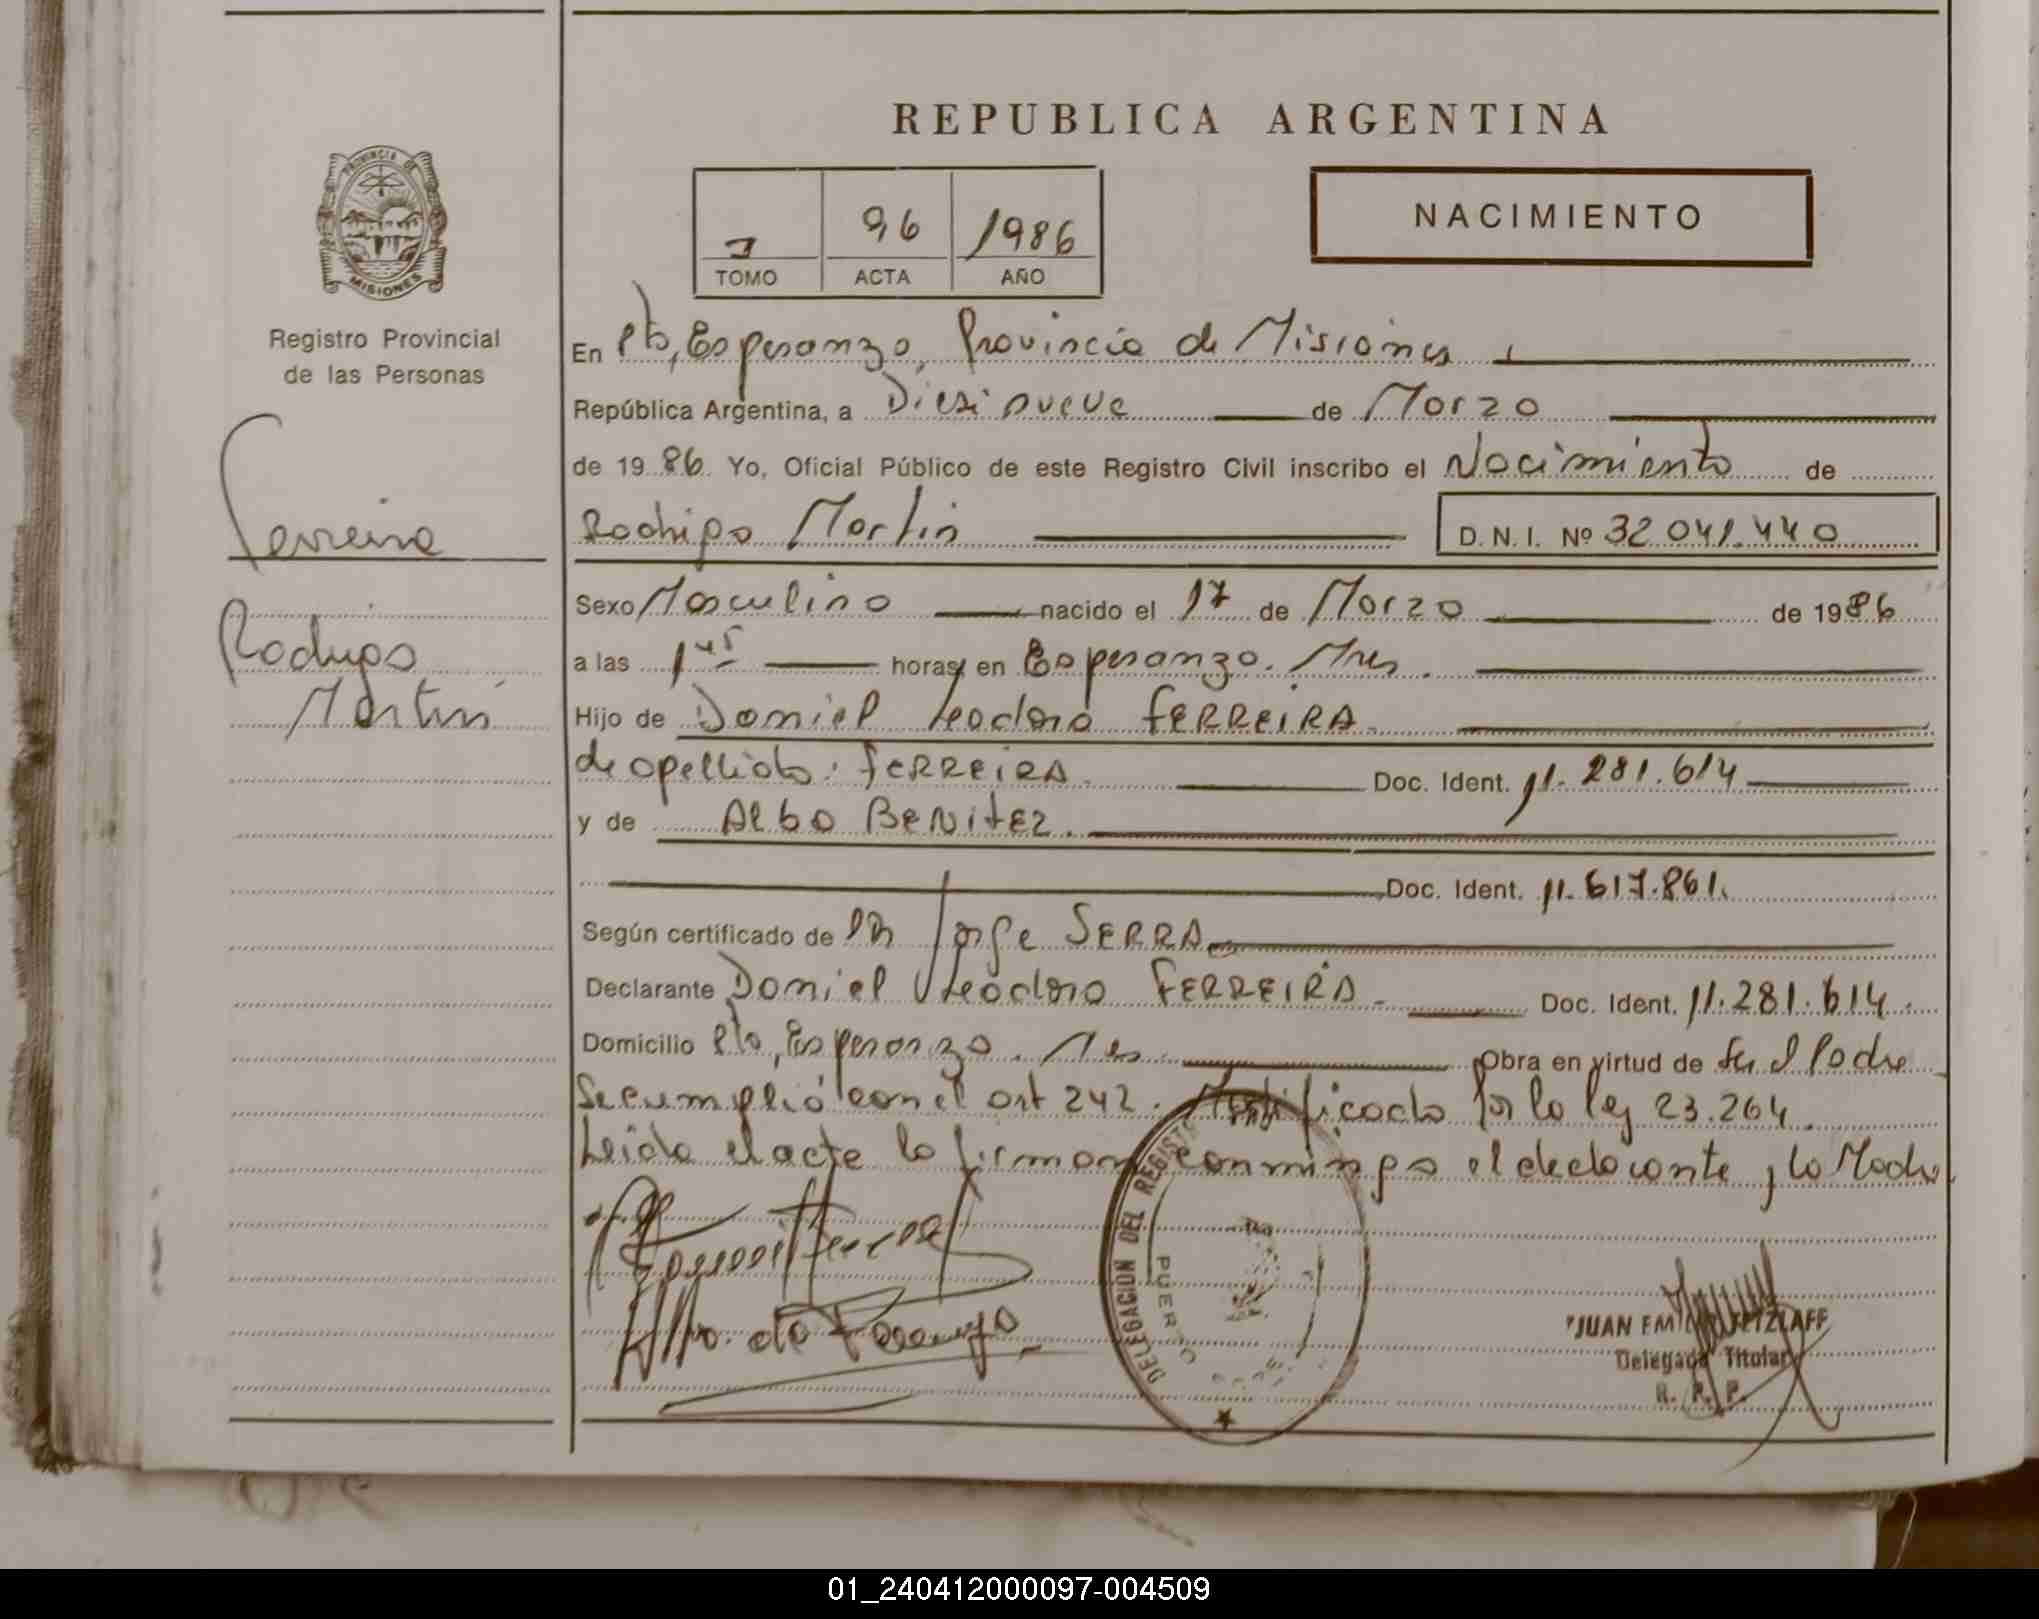 REPUBLICA ARGENTINA
PROVINCIA DE
MISIONES
Registro Provincial
de las Personas
Ferreira
Rodrigo
Martin
96 1986
TOMO ACTA AÑO
NACIMIENTO
En Pto, Esperanza, Provincia de Misiones
República Argentina, a Diesinueve de Marzo
de 1986. Yo, Oficial Público de este Registro Civil inscribo el Nacimiento de
Rodrigo Martin D.N.I. Nº 32 041.440
Sexo Masculino nacido el 17 de Marzo de 1986
a las 1 45 horas, en Esperanza. Mnes.
Hijo de Daniel Teodoro FERREIRA.
de apellido: FERREIRA. Doc. Ident. 11.281.614
y de Alba BENITEZ.
Doc. Ident. 11.617.861.
Según certificado de Dr Jorge SERRA
Declarante Daniel Teodoro FERREIRA. Doc. Ident. 11.281.614.
Domicilio Pto, Esperanza. Mnes. Obra en virtud de Ser el Padre
Se cumplió con el art 242. Modificado por la ley 23.264.
Leida el acta la firman conmigo el declarante y la Madre.
DELEGACIÓN DEL REGISTR
PUERTO
JUAN EMILIO RETZLAFF
Delegado Titular
R. P. P.
01_240412000097-004509